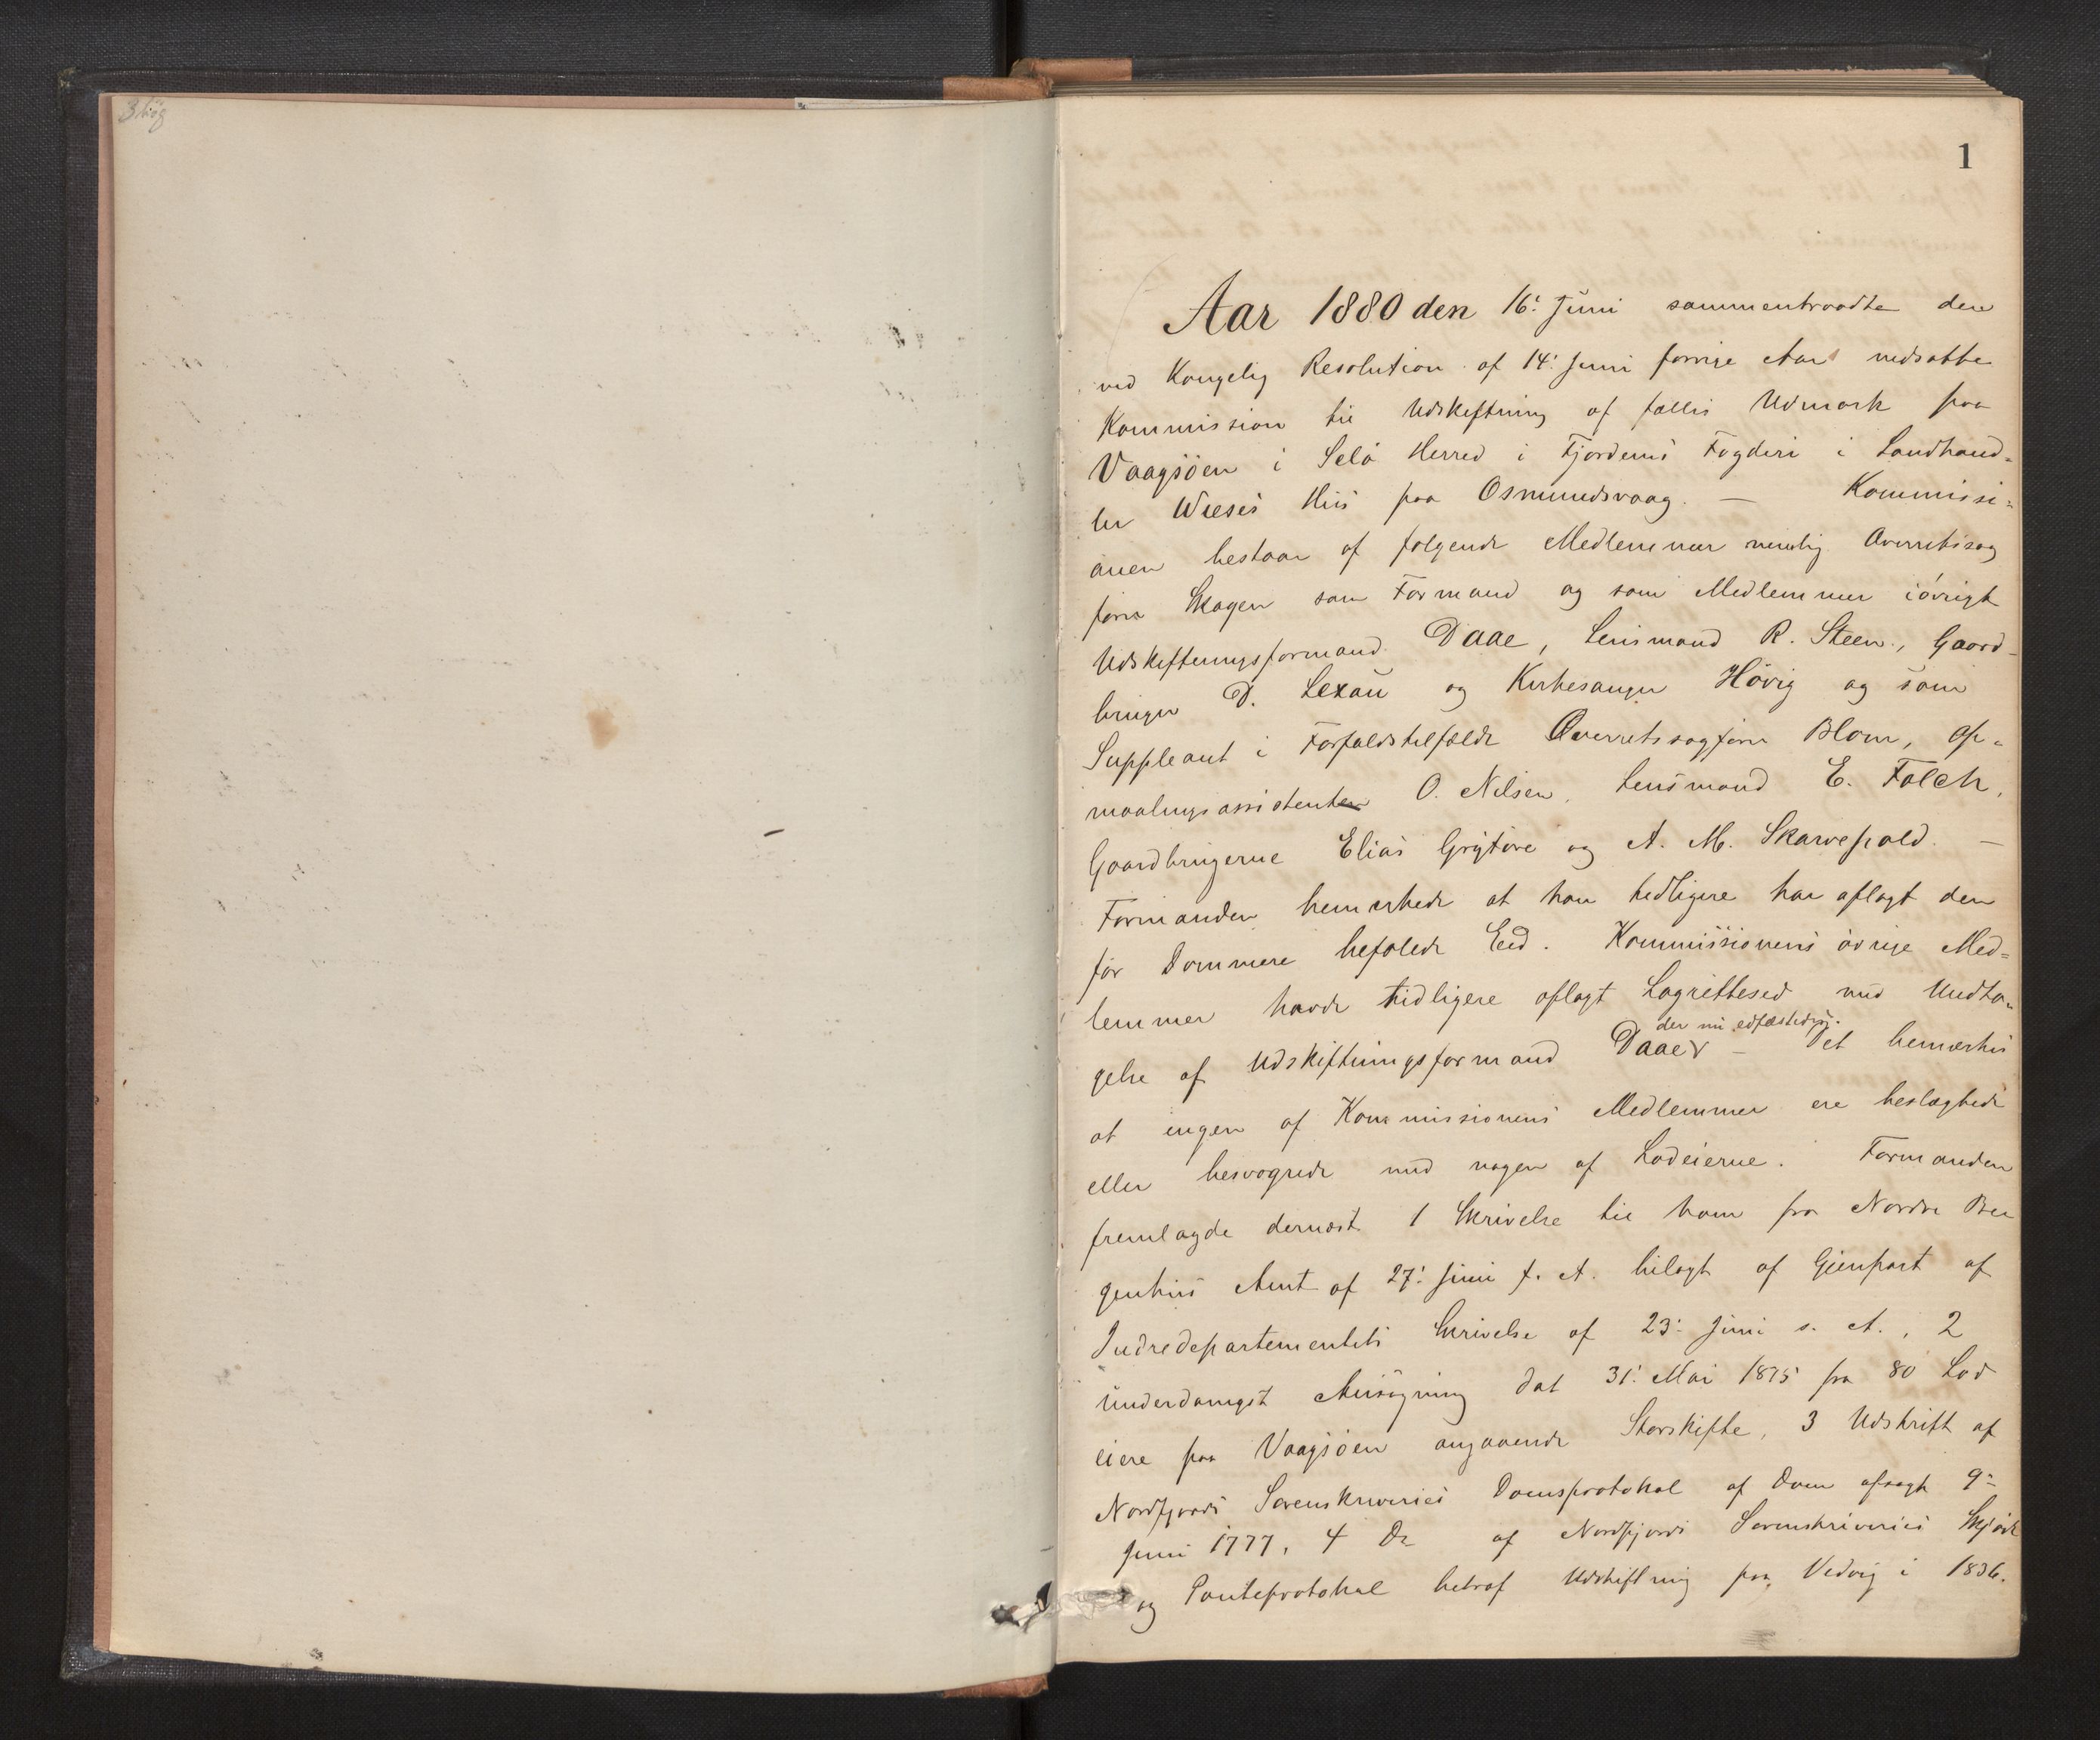 1
Aar 1880 den 16: Juni sammentraadte den
ved Kongelig Resolution af 14: Juni forrige Aar nedsatte
Kommission til Udskiftning af fælles Udmark paa
Vaagsöen i Selø Herred i Fjordenes Fogderi i Landhand-
ler Wieses Hus paa Osmundsvaag. — Kommissi-
onen bestaar af følgende Medlemmer nemlig Overretssag
fører Skagen som Formand og som Medlemmer iövrigt
Udskiftningsformand Daae, Lensmand R. Steen, Gaard-
bruger D. Lexau og Kirkesanger Hövig og som
Suppleant i Forfaldstilfælde Overretssagfører Blom, Op-
maalingsassistent O. Nilsen, Lensmand E. Falch,
Gaardbrugerne Elias Grytöre og A. M. Skavøpold. —
Formanden bemærkede at han tidligere har aflagt den
for Dommere befalede Eed. Kommissionens övrige Med-
lemmer havde tidligere aflagt Lagrettesed med Undta-
der nu edfæstedes.
gelse af Udskiftningsformand Daae — Det bemærkes
at ingen af Kommissionens Medlemmer ere beslægtede
eller besvogrede med nogen af Lodeierne. Formanden
fremlagde dernæst 1 Skrivelse til ham fra Nordre Ber
genhus Amt af 27: Juni f. A. bilagt af Gjenpart af
Indredepartementets Skrivelse af 23: Juni s. A., 2
underdanigst Ansögning dat 31: Mai 1875 fra 80 Lod
eiere paa Vaagsöen angaaende Storskifte, 3 Udskrift af
Nordfjords Sorenskriveries Domsprotokol af Dom afsagt 9:
Juni 1777, 4 Do af Nordfjords Sorenskriveries Skjöde
og Panteprotokol betræf Udskiftning paa Vedvig i 1836.